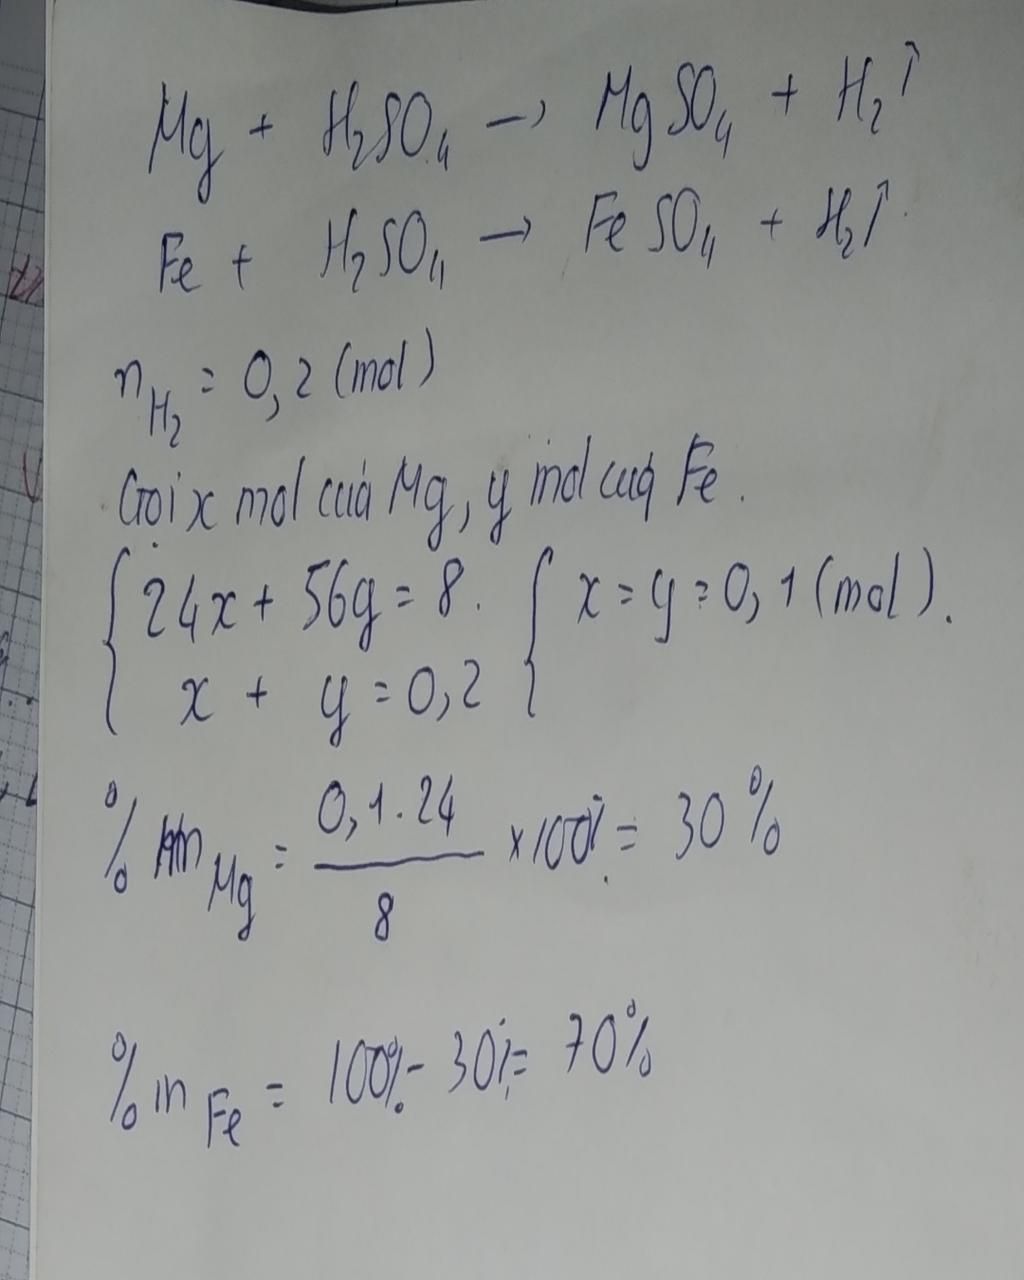 Mg + H₂SO₄ → MgSO₄ + H₂↑
Fe + H₂SO₄ → FeSO₄ + H₂↑
n_H₂ = 0,2 (mol)
Gọi x mol của Mg, y mol của Fe.
{ 24x + 56y = 8. { x = y = 0,1 (mol).
x + y = 0,2
% m_Mg = 0,1.24 / 8 × 100% = 30%
% m_Fe = 100% - 30% = 70%